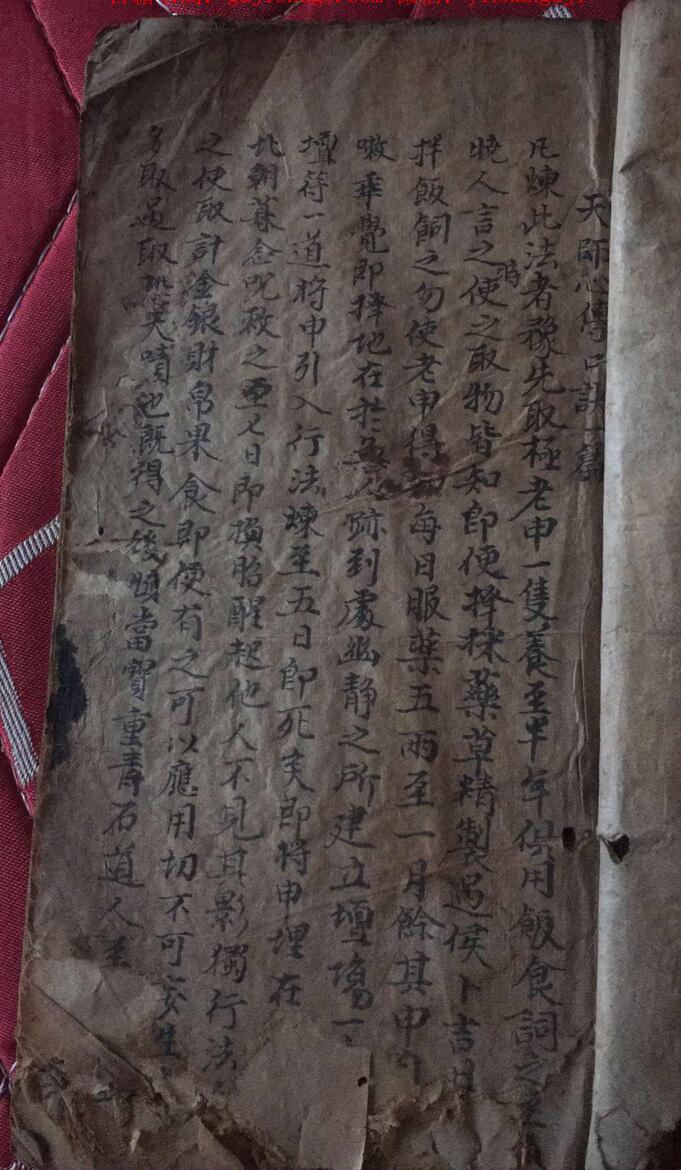 天師心傳口訣一篇
凡煉此法者豫先取極老申一隻養至半年供用飯食詞之
曉人言之使之取物皆知即便擇採藥草精製過候卜吉日
拌飯飼之勿使老申得知每日服藥五兩至一月餘其中
嗽華覺即擇地在於無人跡到處幽静之所建立壇場一
壇符一道將申引入行法煉至五日即死矣即將申埋在
此朝暮念咒敕之至七日即換胎醒起他人不見其影獨行法
之使取計金銀財帛果食即便有之可以應用切不可妄生
多取過取 笑嘖也既得之後慎當寶重青石道人至